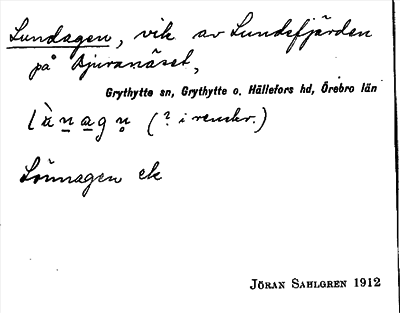 Lundagen, vik av Lundsfjärden
på Bjuranäset,
Grythytte sn, Grythytte o. Hällefors hd, Örebro län
lànagn (? i renskr.)
Lönnagen ek
JÖRAN SAHLGREN 1912